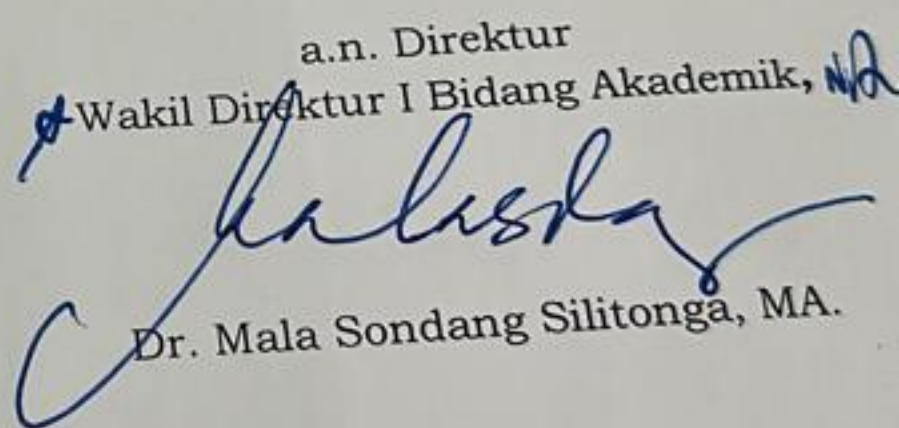 a.n. Direktur
Wakil Direktur I Bidang Akademik,
Dr. Mala Sondang Silitonga, MA.